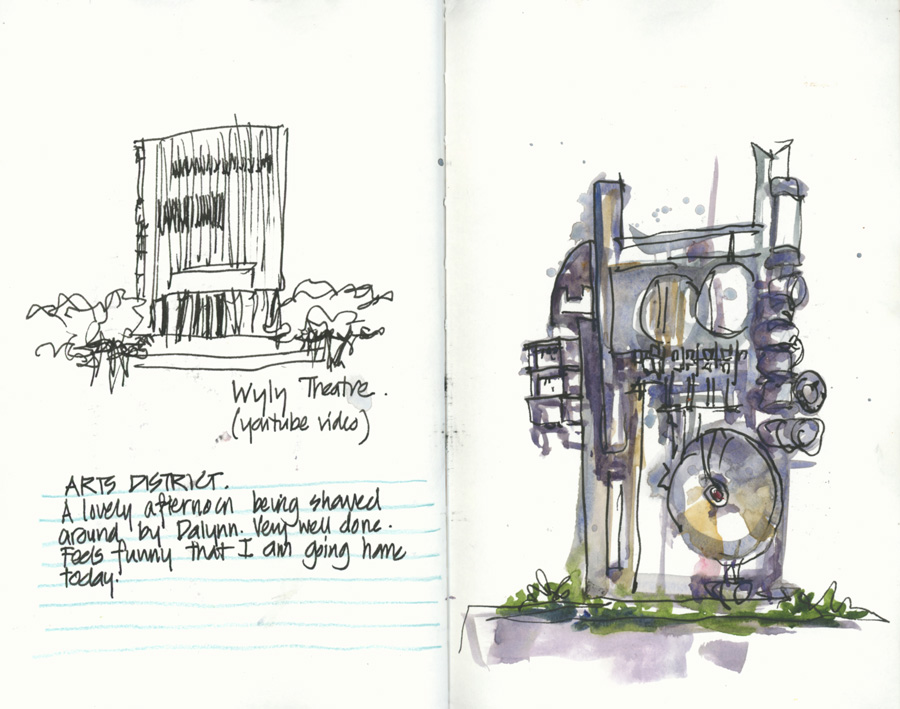 Wyly Theatre.
(youtube video)
ARTS DISTRICT.
A lovely afternoon being showed
around by Dalynn. Very well done.
Feels funny that I am going home
today.